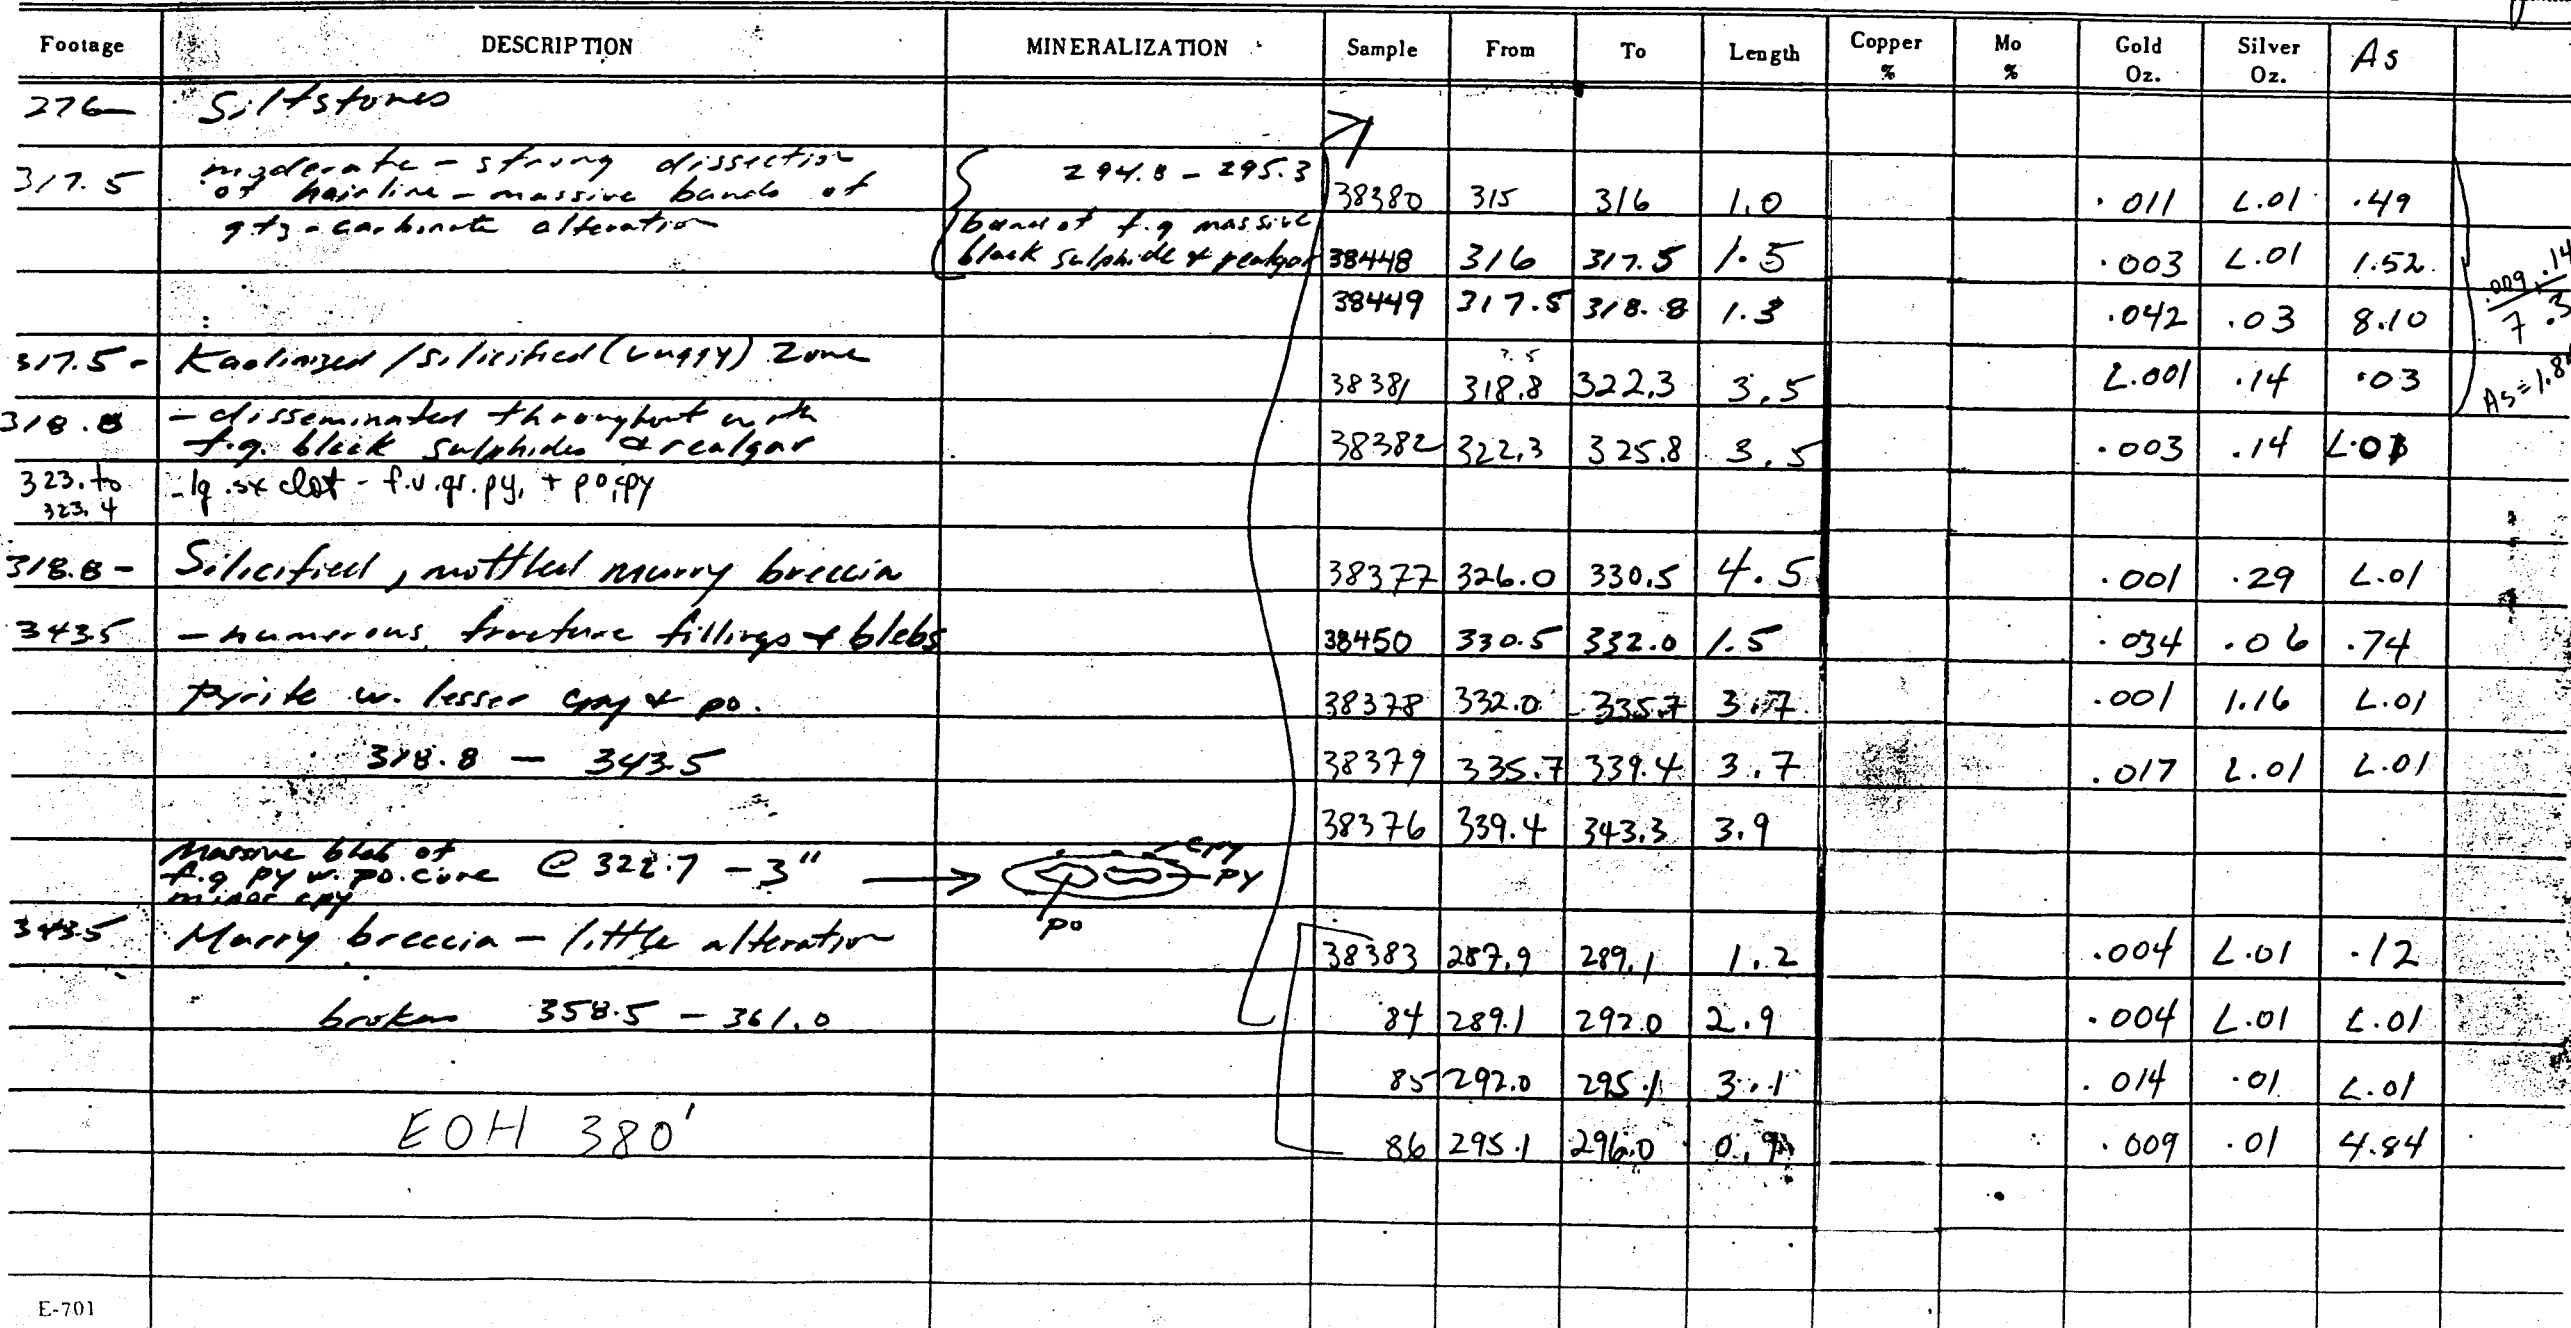 Footage DESCRIPTION MINERALIZATION Sample From To Length Copper % Mo % Gold Oz. Silver Oz. As
276- Siltstones
317.5 moderate - strong dissection 294.8 - 295.3
of hairline - massive bands of 38380 315 316 1.0 .011 L.01 .49
qtz - carbonate alteration band of f.g massive
black sulphide & realgar 38448 316 317.5 1.5 .003 L.01 1.52
38449 317.5 318.8 1.3 .042 .03 8.10
.009 .14
7 .3
317.5 - Kaolinized / silicified (vuggy) Zone
38381 318.8 322.3 3.5 L.001 .14 .03
As = 1.8
318.8 - disseminated throughout with
f.g. black sulphides & realgar 38382 322.3 325.8 3.5 .003 .14 L.01
323. to - lg. sx clot - f.v.gr. py, + po, cpy
323.4
318.8 - Silicified, mottled murry breccia 38377 326.0 330.5 4.5 .001 .29 L.01
343.5 - numerous fracture fillings & blebs 38450 330.5 332.0 1.5 .034 .06 .74
pyrite w. lesser cpy & po. 38378 332.0 335.7 3.7 .001 1.16 L.01
318.8 - 343.5 38379 335.7 339.4 3.7 .017 L.01 L.01
38376 339.4 343.3 3.9
Massive bleb of
f.g py w. po. core @ 322.7 - 3" cpy
minor cpy py
po
343.5 Murry breccia - little alteration 38383 287.9 289.1 1.2 .004 L.01 .12
broken 358.5 - 361.0 84 289.1 292.0 2.9 .004 L.01 L.01
85 292.0 295.1 3.1 .014 .01 L.01
EOH 380' 86 295.1 296.0 0.9 .009 .01 4.84
E-701